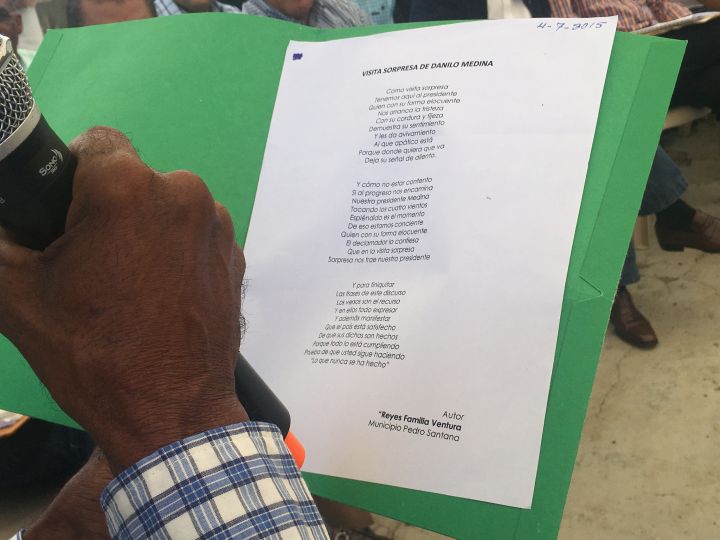 4-7-2015
VISITA SORPRESA DE DANILO MEDINA
Como visita sorpresa
Tenemos aquí al presidente
Quien con su forma elocuente
Nos arranca la tristeza
Con su cordura y fijeza
Demuestra su sentimiento
Y les da avivamiento
Al que apático está
Porque donde quiera que va
Deja su señal de aliento.
Y cómo no estar contento
Si al progreso nos encamina
Nuestro presidente Medina
Tocando los cuatro vientos
Espléndido es el momento
De eso estamos conciente
Quien con su forma elocuente
El declamador lo confiesa
Que en la visita sorpresa
Sorpresa nos trae nuestro presidente
Y para finiquitar
Las frases de este discurso
Los versos son el recurso
Y en ellos todo expresar
Y además manifestar
Que el país está satisfecho
De que sus dichos son hechos
Porque todo lo está cumpliendo
Prueba de que usted sigue haciendo
"Lo que nunca se ha hecho"
Autor
"Reyes Familia Ventura
Municipio Pedro Santana